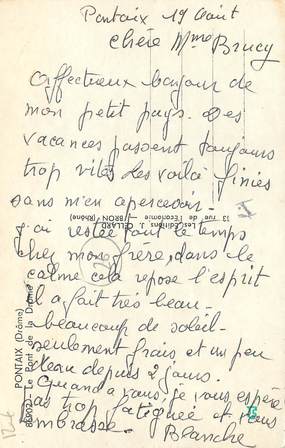 Pontaix 19 Août
chère Mme Brucy
affectueux bonjour de
mon petit pays. Des
vacances passent toujours
trop vite les voilà finies
sans m'en apercevoir -
j'ai restée tout le temps
chez mon frère, dans le
calme cela repose l'esprit
il a fait très beau -
beaucoup de soleil -
seulement frais, et un peu
d'eau depuis 2 jours.
Quand a vous, je vous espère
pas trop fatiguée et vous
embrasse. Blanche
PONTAIX (Drôme)
Le Pont de la Drôme
Les Editions J. CELLARD
13 rue de l'Economie
BRON (Rhône)